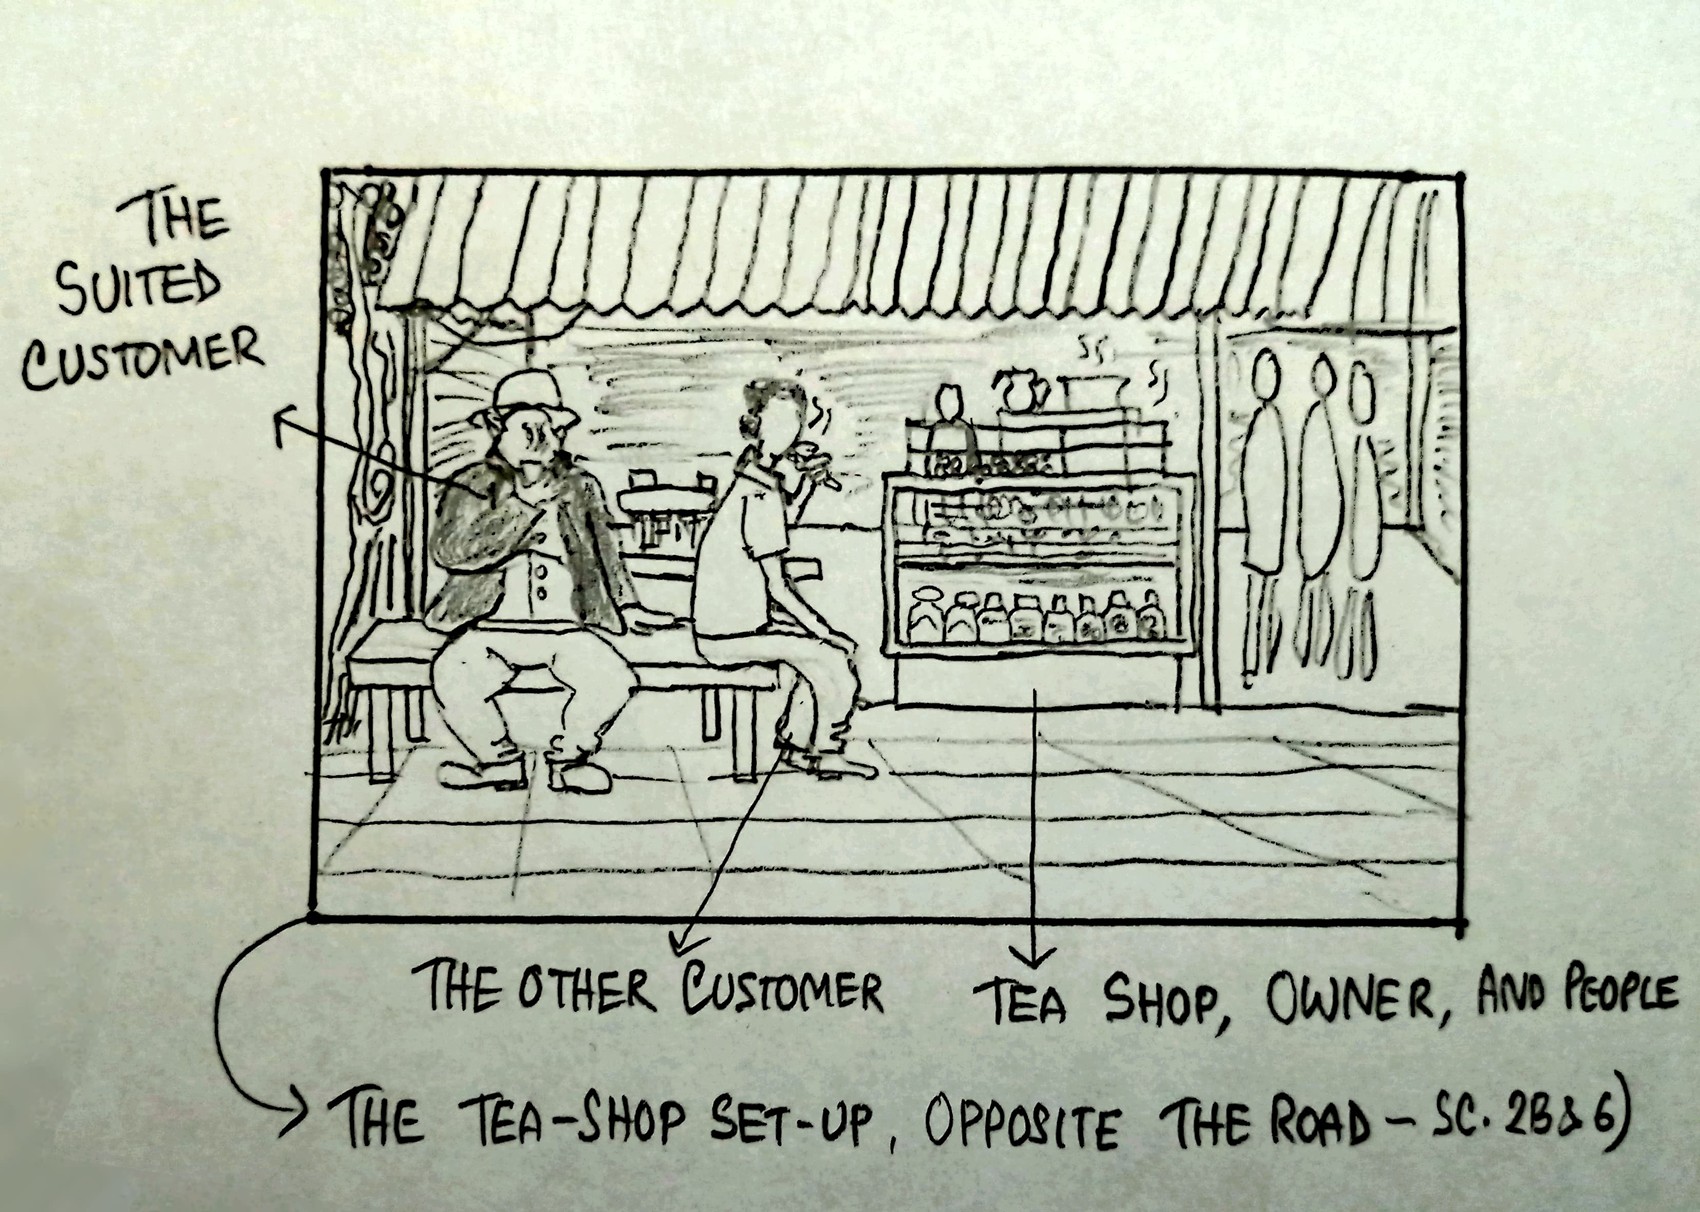 THE
SUITED
CUSTOMER
THE OTHER CUSTOMER
TEA SHOP, OWNER, AND PEOPLE
THE TEA-SHOP SET-UP, OPPOSITE THE ROAD - SC. 2B & 6)